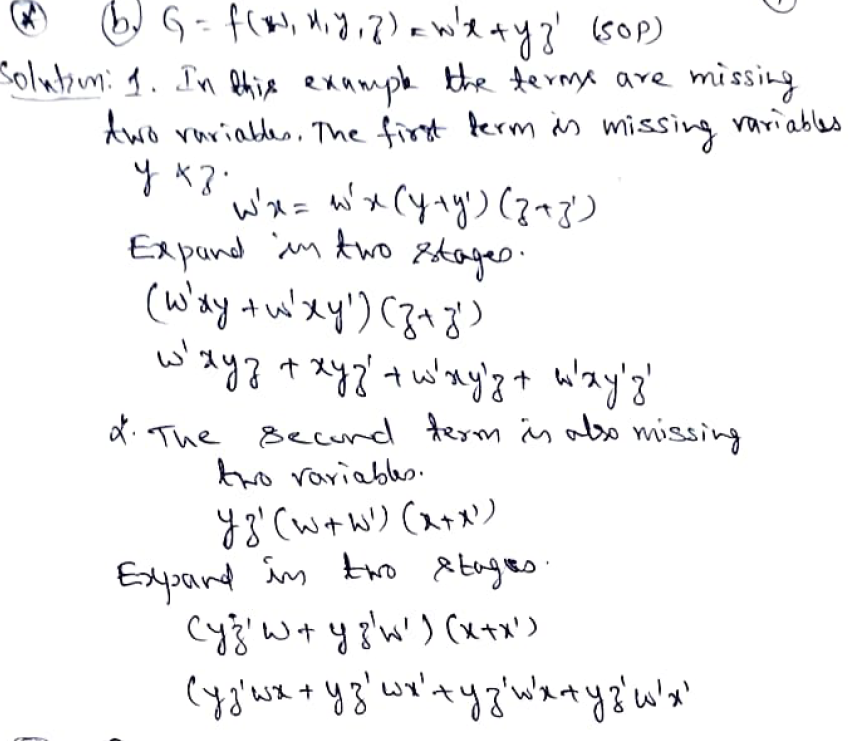 (*) (b.) G = f(w, x, y, z) = w'x + yz' (SOP)
Solution: 1. In this example the terms are missing
two variables. The first term is missing variables
y & z.
w'x = w'x (y+y') (z+z')
Expand in two stages.
(w'xy + w'xy') (z+z')
w'xyz + xyz' + w'xy'z + w'xy'z'
2. The second term is also missing
two variables.
yz' (w+w') (x+x')
Expand in two stages.
(yz'w + yz'w') (x+x')
(yz'wx + yz'wx' + yz'w'x + yz'w'x'